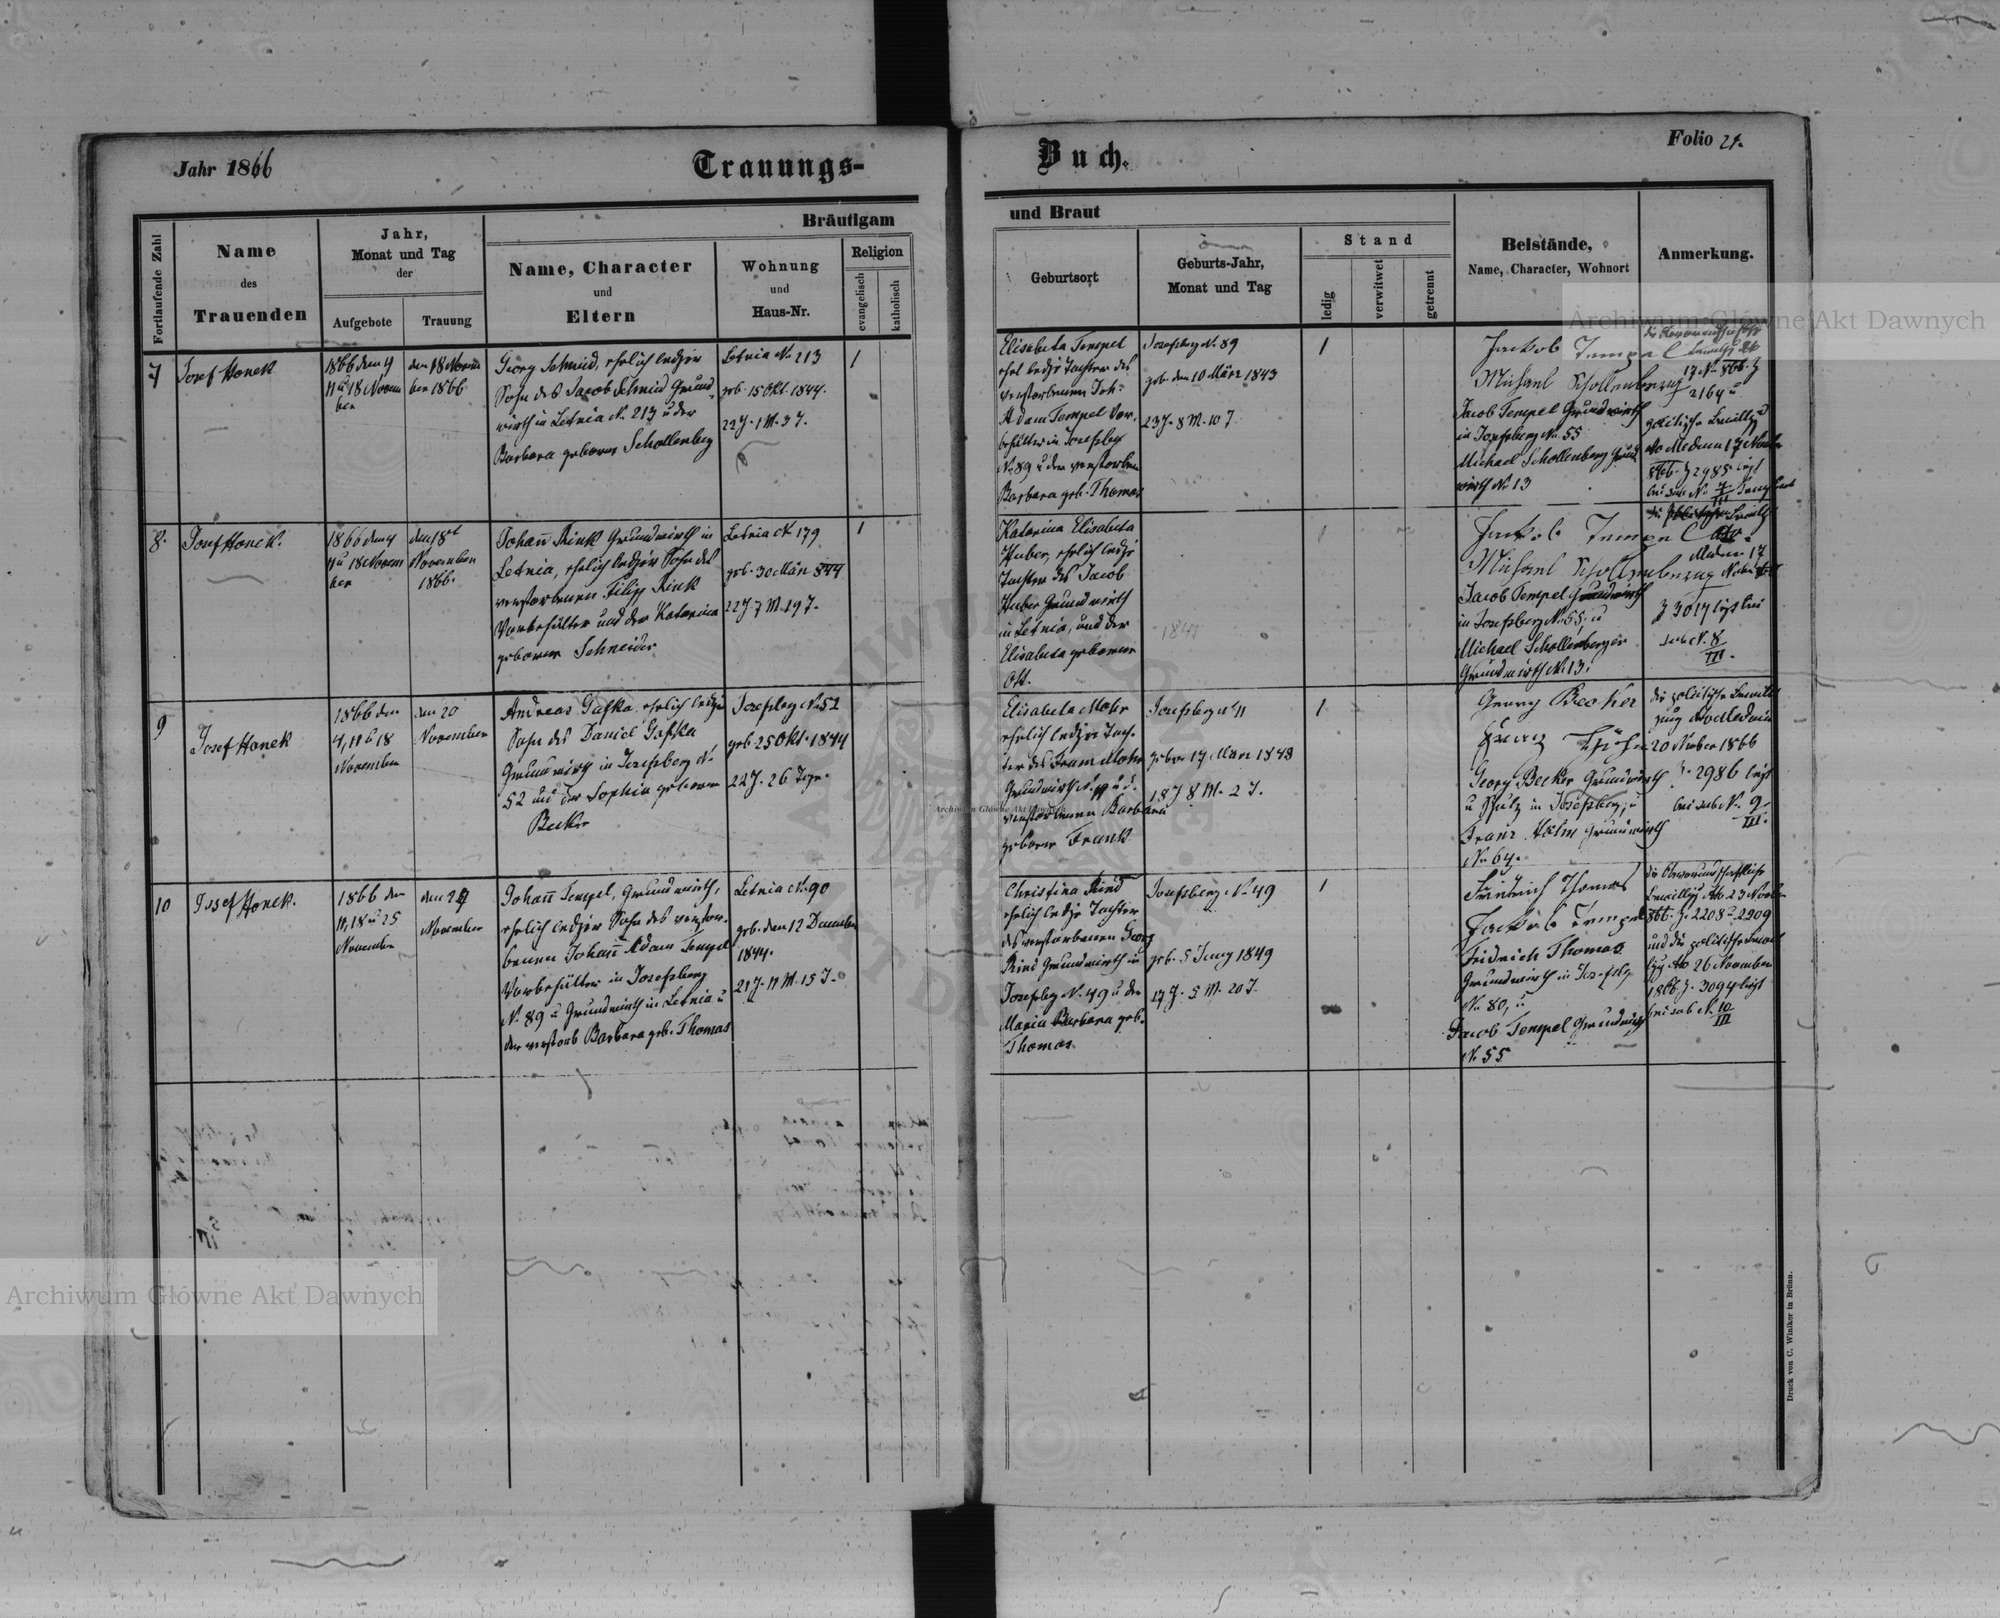 Jahr 1866
Trauungs-
Buch.
Folio 21.
Fortlaufende Zahl
Name
des
Trauenden
Jahr,
Monat und Tag
der
Aufgebote
Trauung
Bräutigam
Name, Character
und
Eltern
Wohnung
und
Haus-Nr.
Religion
evangelisch
katholisch
und Braut
Geburtsort
Geburts-Jahr,
Monat und Tag
Stand
ledig
verwitwet
getrennt
Beistände,
Name, Character, Wohnort
Anmerkung.
7
Josef Honek
1866 den 4
11 u 18 Novem
ber
den 18 Novem
ber 1866
Georg Schmid, ehrlich lediger
Sohn des Jacob Schmid Grund
wirth in Letnia N. 213 u der
Barbara geborene Schollenberg
Letnia No 213
geb. 15 Okt. 1844.
22 J. 1 M. 3 T.
1
Elisabeta Tempel
ehrl ledige Tochter des
verstorbenen Joh:
Adam Tempel Vor-
behälter in Josefsberg
N. 89 u der verstorben
Barbara geb. Thomas
Josefsberg N. 89
geb. den 10 März 1843
23 J. 8 M. 10 T
1
Jackob Tempel
Michael Schollenberger
Jacob Tempel Grundwirth
in Josefsberg No 55
Michael Schollenberg Grund
wirth No 13
politische Bewillig
dto Medenic 17 Novbr
866. Z 2985 liegt
bei sub N. 7
III
8.
Josef Honek.
1866 den 4
11 u 18 Novem
ber
den 18t
November
1866.
Johañ Rink Grundwirth in
Letnia, ehrlich lediger Sohn des
verstorbenen Filipp Rink
Vorbehälter und der Katarina
geborene Schneider
Letnia N. 179
geb. 30 März 844
22 J. 7 M. 19 T.
1
Katarina Elisabeta
Huber, ehrlich ledige
Tochter des Jacob
Huber Grundwirth
in Letnia, und der
Elisabeta geborene
Ott.
1
Jackob Tempel
Michael Schollenberger
Jacob Tempel Grundwirth
in Josefsberg No 55, u
Michael Schollenberger
Grundwirth N. 13.
Z 3017 liegt bei
sub N. 8
III.
9
Josef Honek
1866 den
4, 11 u 18
November
den 20
November
Andreas Gafka ehrlich lediger
Sohn des Daniel Gafka
Grundwirth in Josefsberg N.
52 und der Sophia geborene
Becker
Josefsberg N. 52
geb 25 Okt. 1844
22 J. 26 Tage.
Elisabeta Mohr
ehrlich ledige Toch-
ter des Franz Mohr
Grundwirth N. 11 u d.
verstorbenen Barbara
geborene Frank
Josefsberg N. 11
geboren 17 März 1848
18 J 8 M. 2 T.
1
Georg Becker
Georg Becker Grundwirth
u Schulz in Josefsberg, u
Franz Helm Grundwirth
No 64.
die politische Bewilli
gung dto Medenic
20 November 1866
Z. 2986 liegt
bei sub N. 9
III.
10
Josef Honek.
1866 den
11, 18 u 25
November
den 27
November
Johañ Tempel, Grundwirth,
ehrlich lediger Sohn des verstor-
benen Johañ Adam Tempel
Vorbehälter in Josefsberg
N. 89 u Grundwirth in Letnia u
der verstorb Barbara geb. Thomas
Letnia N. 90
geb. den 12 Dezember
1844.
21 J. 11 M. 15 T.
Christina Rind
ehrlich ledige Tochter
des verstorbenen Georg
Rind Grundwirth in
Josefsberg N. 49 u der
Maria Barbara geb.
Thomas
Josefsberg N. 49
geb. 5 Juny 1849
17 J. 5 M. 20 T.
1
Friedrich Thomas
Jackob Tempel
Fridrich Thomas
Grundwirth in Josefsbg
No 80, u
Jacob Tempel Grundwirth
No 55
die Obervormundschaftliche
Bewillig dto 23 Novbr
866. Z. 2208 u 2909
und die politische Bewil
lig dto 26 November
1866 Z. 3094 liegt
bei sub N. 10
III
Druck von C. Winiker in Brünn.
Archiwum Główne Akt Dawnych
Archiwum Główne Akt Dawnych
Archiwum Główne Akt Dawnych